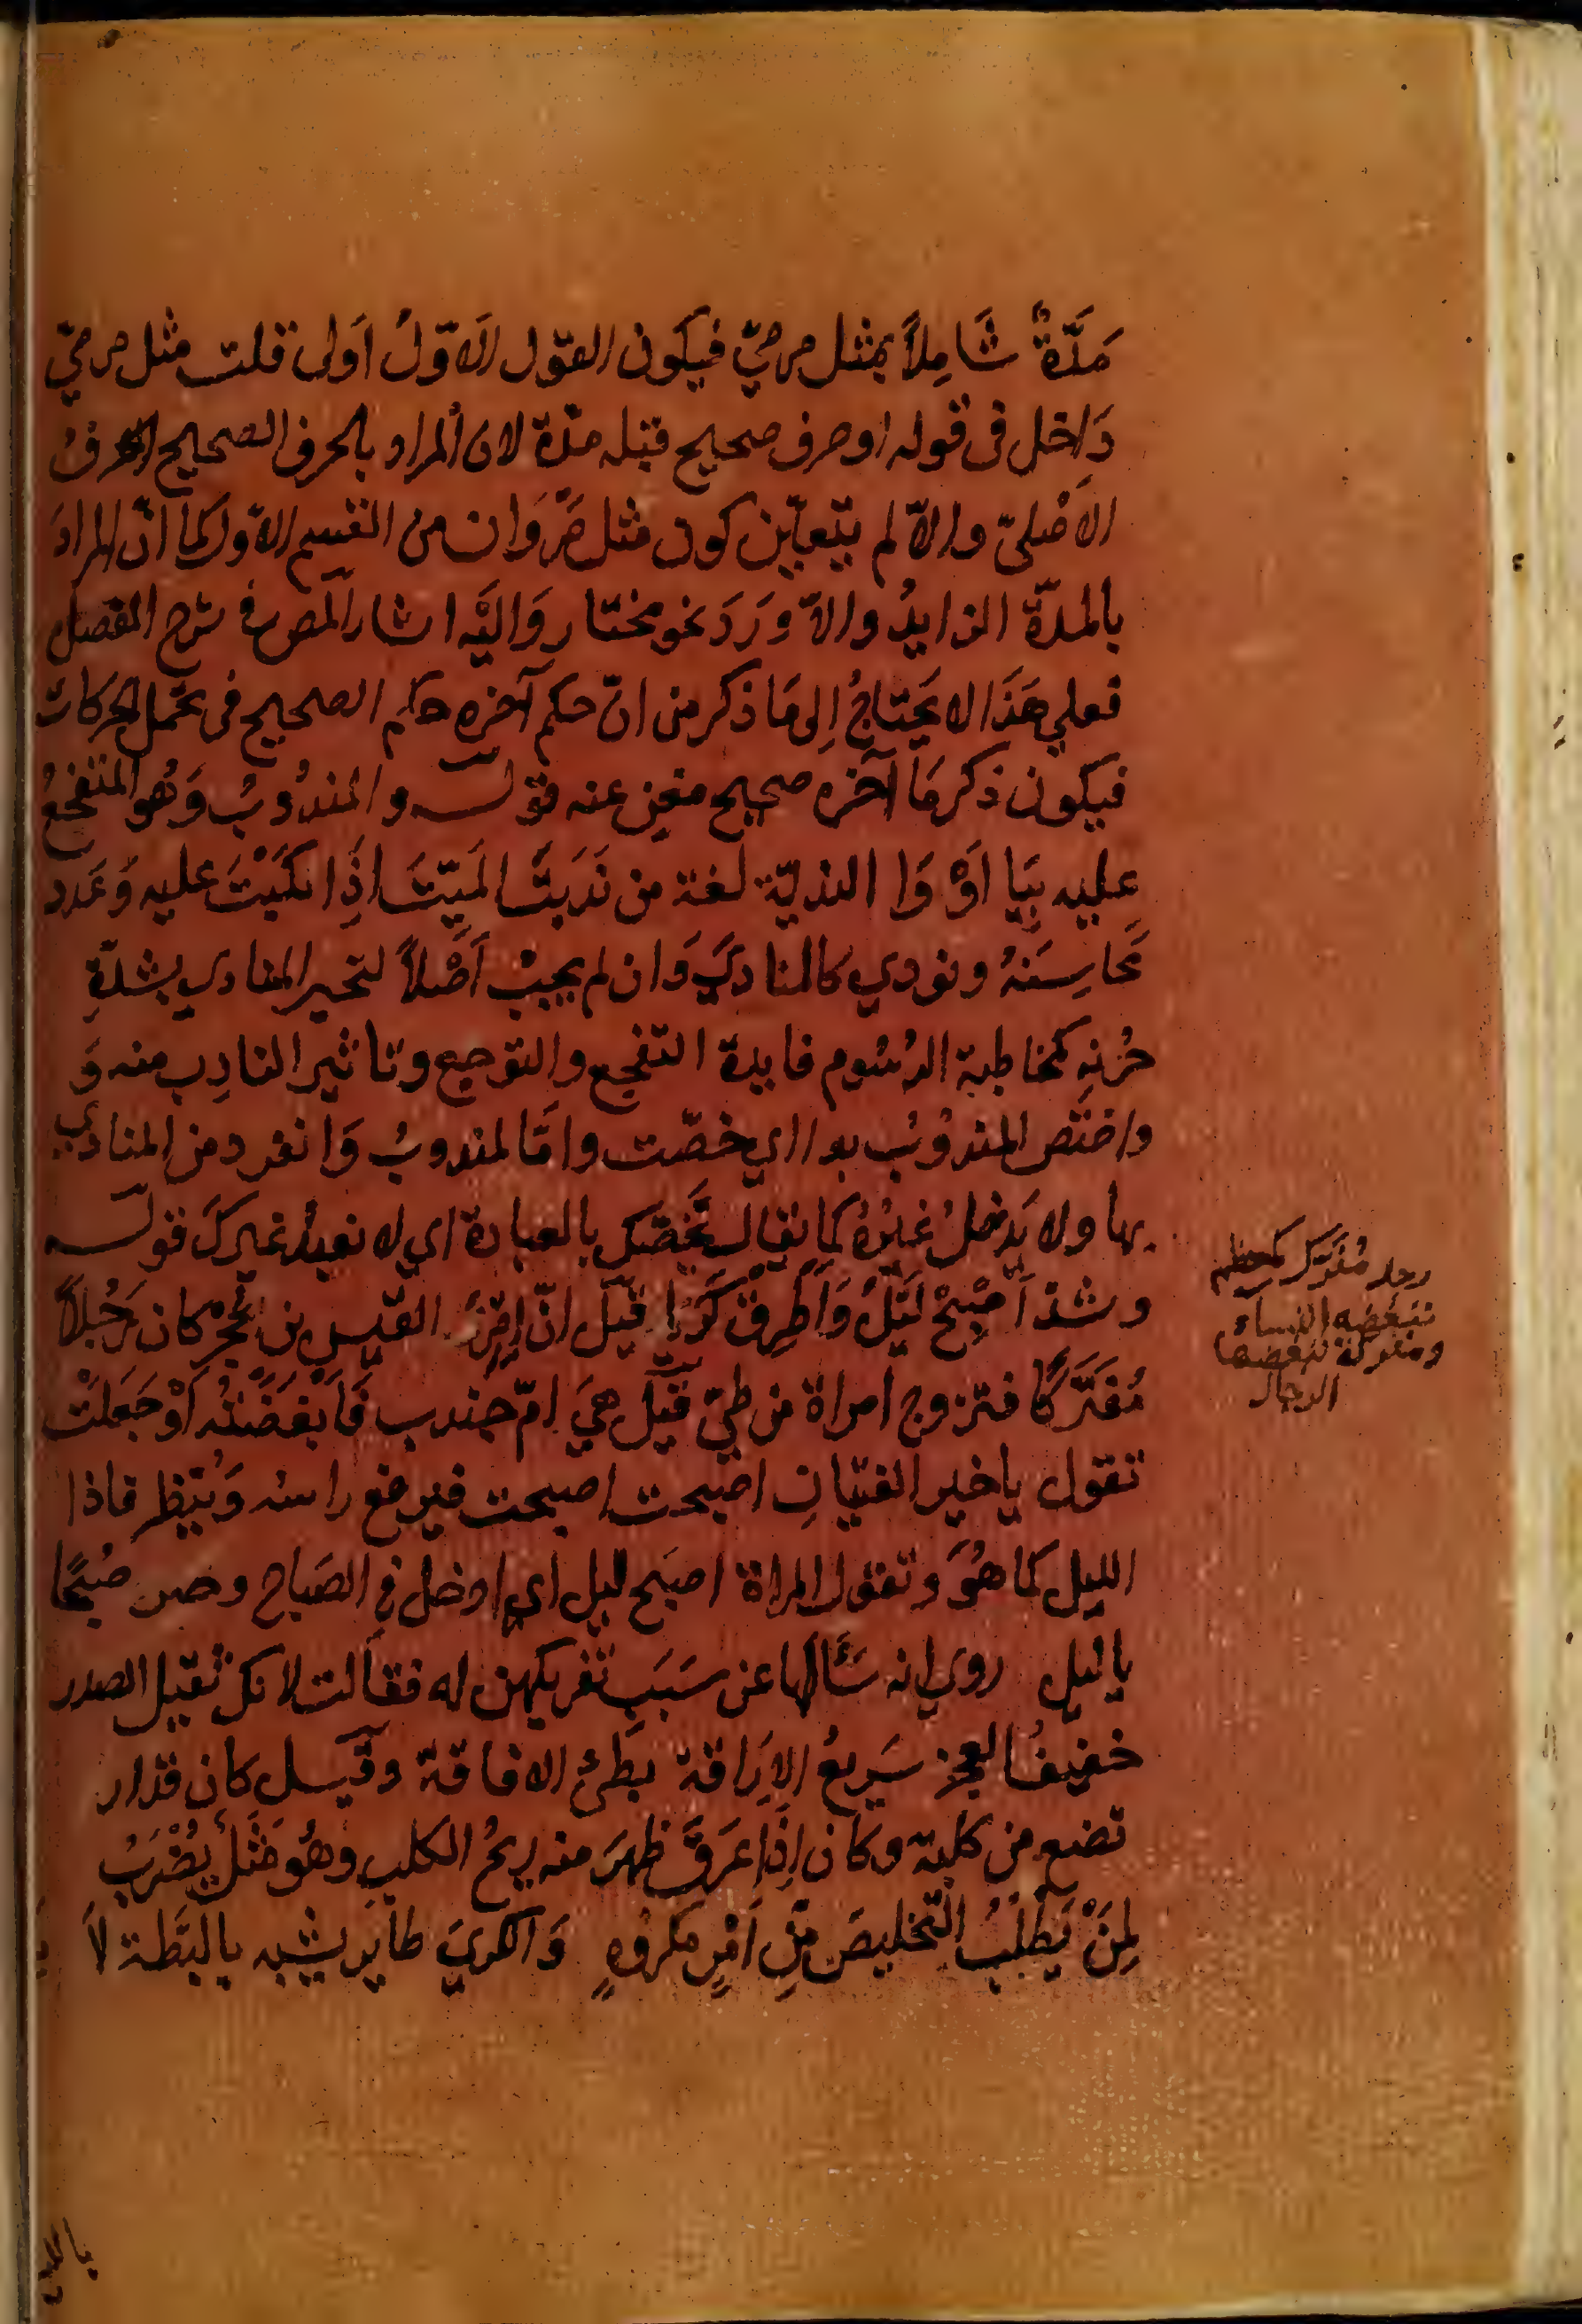 مَدَّةٌ شَامِلاً بمثل مرميّ فيكون القول الاَوّلُ اَولى قلت مثل مرميّ
دَاخل فى قوله او حرف صحيح قبله مدّة لان المراد بالحرف الصحيح الحرفُ
الاَصْلىّ والاّ لم يتعيّن كون مثل مَرْوَان من القسم الاوّل كما انّ المرادَ
بالمدّة الزايدُ والاّ وَرَدَ نحو مختار وَاليْه اشار المص فى شرح المفصل
فعلي هَذَا لا يَحتاجُ اِلى مَا ذكر من انّ حكم آخره حكم الصحيح فى تحمل الحركات
فيكون ذكر مَا آخره صحيح مغنٍ عنه قوله والمندُوبُ وَهُو المتفجعُ
عليه بيَا اَوْ وَا الندبة لغة من نَدَبَتُ المَيّتَ اِذَا بكَيْتَ عليه وَعَدد
مَحَاسِنَهُ ونودي كالمناديَ وَان لم يجبْ اَصْلاً لتحير المنادي بشدّةِ
حُزنهِ كمخاطبة الرسُوم فايدة التفجع والتوجع وتاثير النادِب منه وَ
واختص المندوُبُ بوا اي خصّت وامّا المندوبُ وَانفرد من المنادي
بها ولا يَدخلُ غيْرُهُ كما يقال نَخُصّك بالعبادة اي لا نعبدُ غيركَ قوله
وشذ اَصْبِحْ لَيْلُ وَاَطْرِقْ كَرَا قيل انّ اِمْرَءَ القيس بن حُجْر كان رَجُلاً
مُفَرَّكًا فتزوج امراة من طيّ قيل هيَ امّ جندب فَاَبْغَضَتْهُ وَجَعَلَتْ
تقول ياخير الفتيانِ اصبحت اصبحت فيرفع راسه وَينظر فاذا
الليل كما هُوَ وتقول المراة اصبَح ليل اي ادخل فى الصَباح وصر صُبحًا
ياليل روي انه سَأَلها عن سَبَب تفريكهن له فقالت لانك ثقيل الصدر
خفيفُ العجز سَريعُ الاِرَاقة بطئُ الافاقة وقيل كان قد ار
تضع من كلبة وكان اِذَا عَرَقَ ظهرَ منه ريحُ الكلبِ وهُو مَثَلٌ يُضْرَبُ
لِمَنْ يَطلُبُ التّخليصَ مِن اَمْرٍ مكروُهٍ وَالكريَ طاير يشبه بالبَطّة لاَ
رجل مُفَرَّك كمعظم
تبغضه النساء
ومفركة تبغضها
الرجال